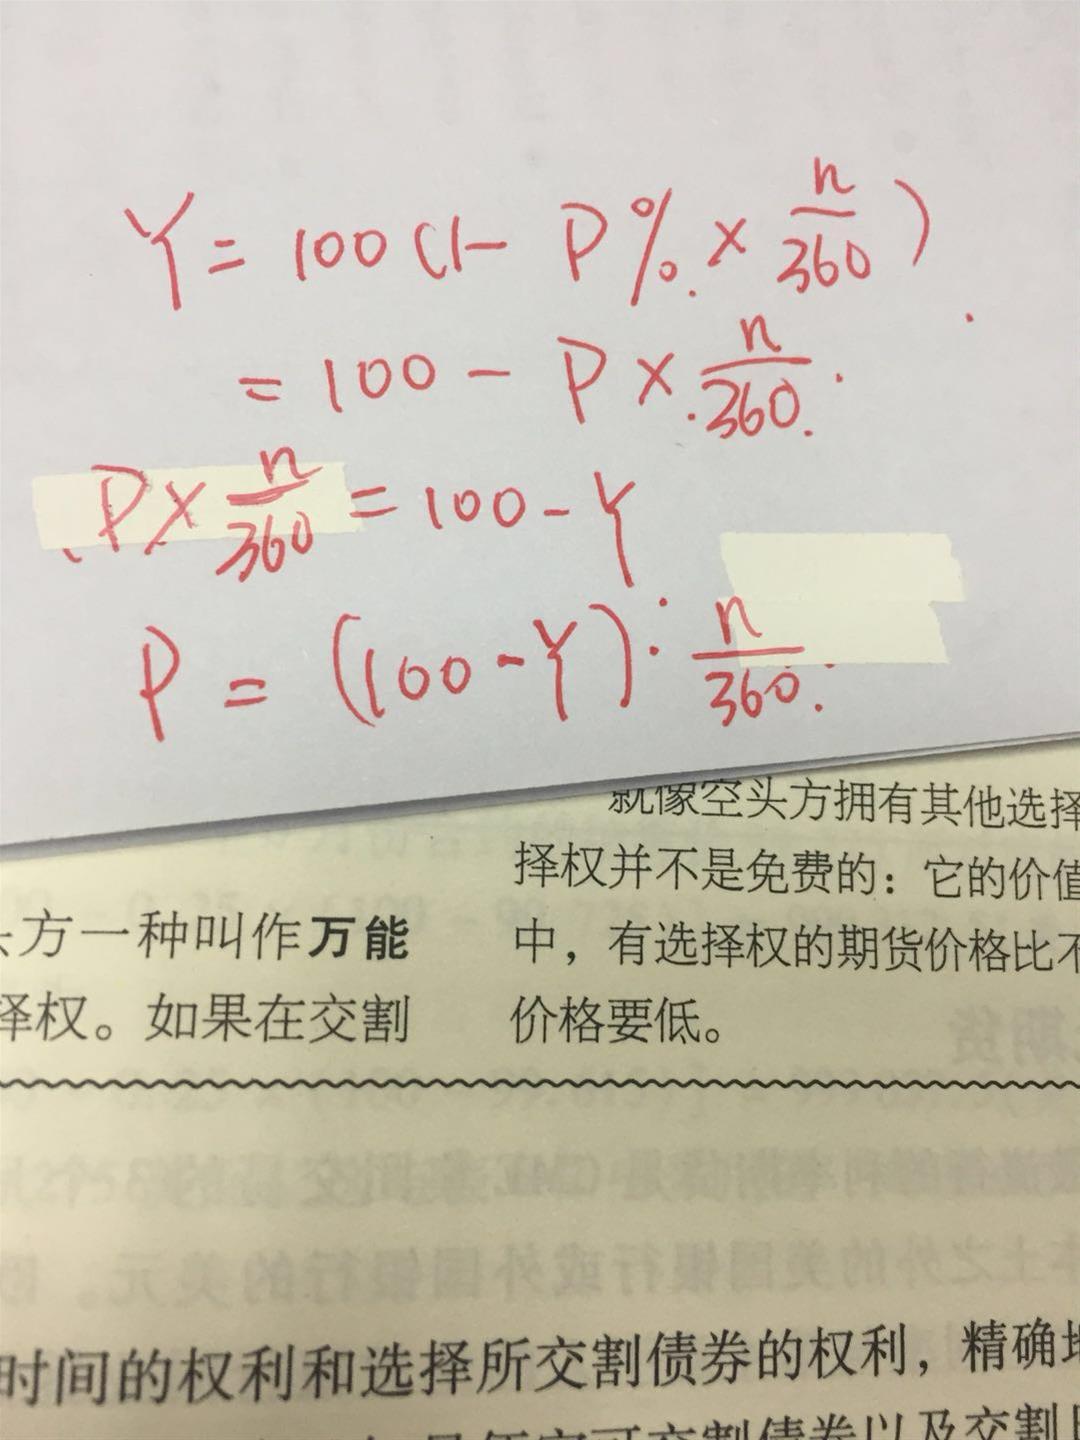 Y = 100 (1- P% × n/360)
= 100 - P × n/360
P × n/360 = 100 - Y
P = (100 - Y) ÷ n/360
就像空头方拥有其他选择
择权并不是免费的：它的价值
中，有选择权的期货价格比不
价格要低。
头方一种叫作万能
择权。如果在交割
时间的权利和选择所交割债券的权利，精确地
可交割债券以及交割